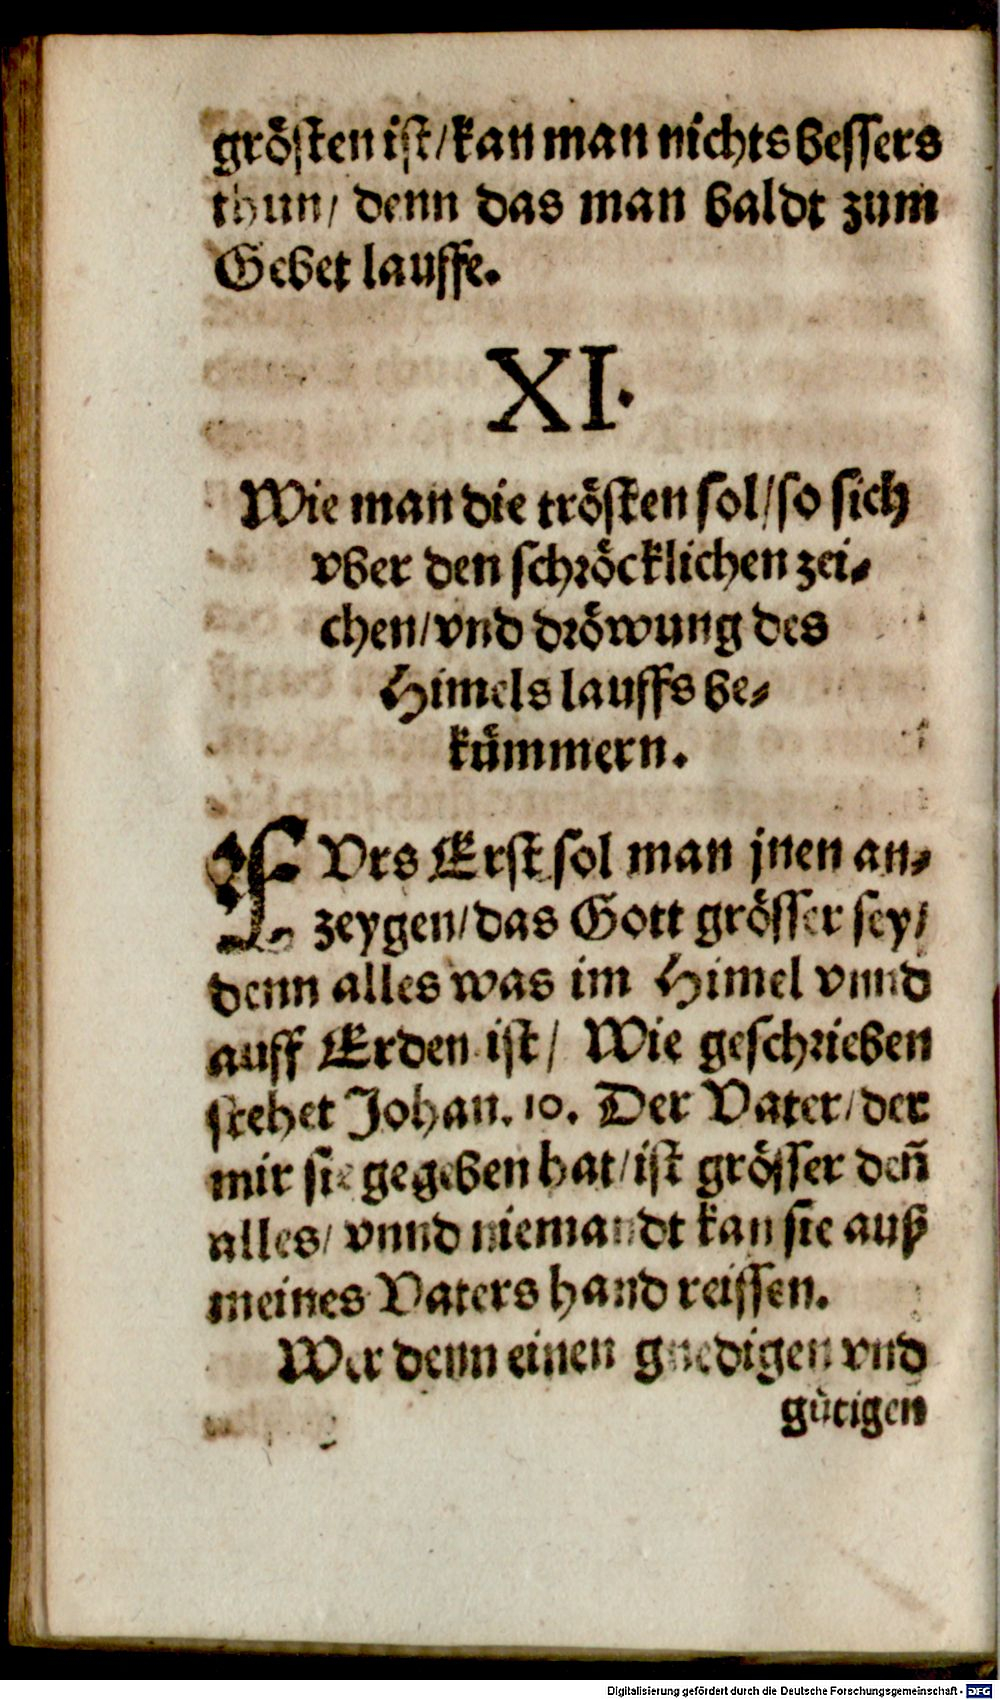 grösten ist/kan man nichts bessers
thun/ denn das man baldt zum
Gebet lauffe.
XI.
Wie man die trösten sol/so sich
vber den schröcklichen zei-
chen/vnd dröwung des
Himels lauffs be-
kümmern.
FVrs Erst sol man jnen an-
zeygen/das Gott grösser sey/
denn alles was im Himel vnnd
auff Erden ist/ Wie geschrieben
stehet Johan. 10. Der Vater/der
mir sie gegeben hat/ist grösser deñ
alles/ vnnd niemandt kan sie auß
meines Vaters hand reissen.
Wer denn einen gnedigen vnd
gütigen
Digitalisierung gefördert durch die Deutsche Forschungsgemeinschaft - DFG